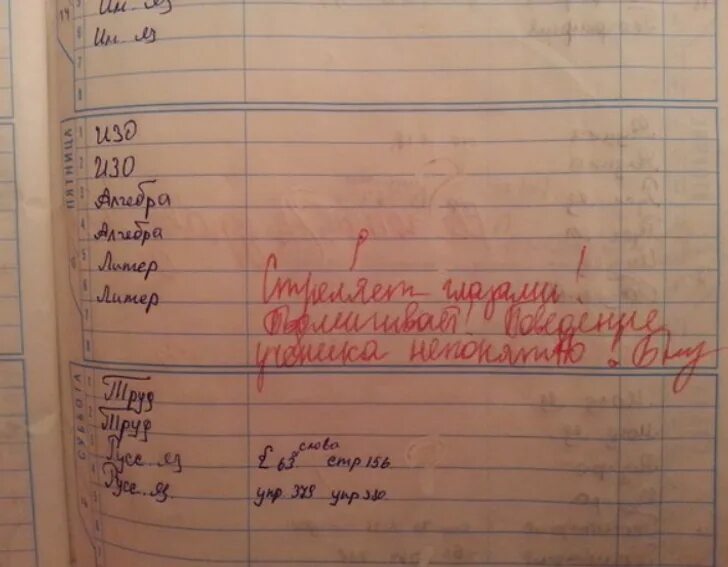 14
5 Ин. яз
6 Ин. яз
7
8
ПЯТНИЦА
1 ИЗО
2 ИЗО
3 Алгебра
4 Алгебра
5 Литер
6 Литер
7
8
Стреляет глазами!
Подмигивает! Поведение
ученика непонятно.
СУББОТА
1 Труд
2 Труд
3 Русс. яз § 63 слова стр 156
4 Русс. яз упр 379 упр 380
5
6
7